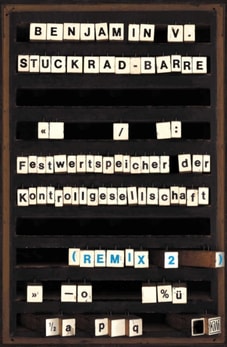 BENJAMIN V.
STUCKRAD-BARRE
« / :
Festwertspeicher der
Kontrollgesellschaft
(REMIX 2 )
» —o %ü
½ a p q